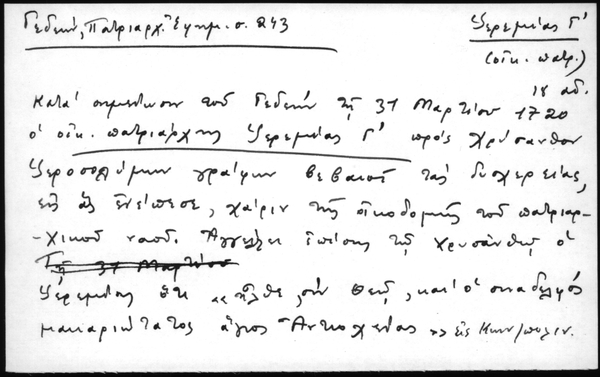 Γεδεών, Πατριαρχ. Ἐφημ. σ. 243
Ἱερεμίας Γ'
(οἰκ. πατρ.)
18 αἰ.
Κατά σημείωσιν τοῦ Γεδεών τῇ 31 Μαρτίου 1720
ὁ οἰκ. πατριάρχης Ἱερεμίας Γ' πρός Χρύσανθον
Ἱεροσολύμων γράφων βεβαιοῖ τάς δυσχερείας,
εἰς ἅς ἐνέπεσε, χάριν τῆς οἰκοδομῆς τοῦ πατριαρ-
-χικοῦ ναοῦ. Ἀγγέλλει ἐπίσης τῷ Χρυσάνθῳ ὁ
τῇ 31 Μαρτίου
Ἱερεμίας ὅτι «ἦλθε, σύν Θεῷ, καί ὁ συναδελφός
μακαριώτατος ἅγιος Ἀντιοχείας» εἰς Κων/πολιν.